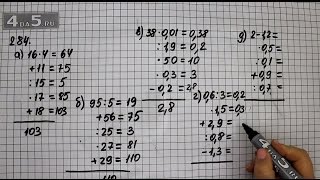 4DA5.RU
284.
а) 16·4=64
+11=75
:15=5
·17=85
+18=103
103
б) 95:5=19
+56=75
:25=3
·27=81
+29=110
110
в) 38·0,01=0,38
:19=0,2
·50=10
·0,3=3
-0,2=2,8
2,8
г) 0,6:3=0,2
·1,5=0,3
+2,9=
:0,8=
-1,3=
д) 2-12=
·0,5=
:0,1=
+0,9=
:0,7=